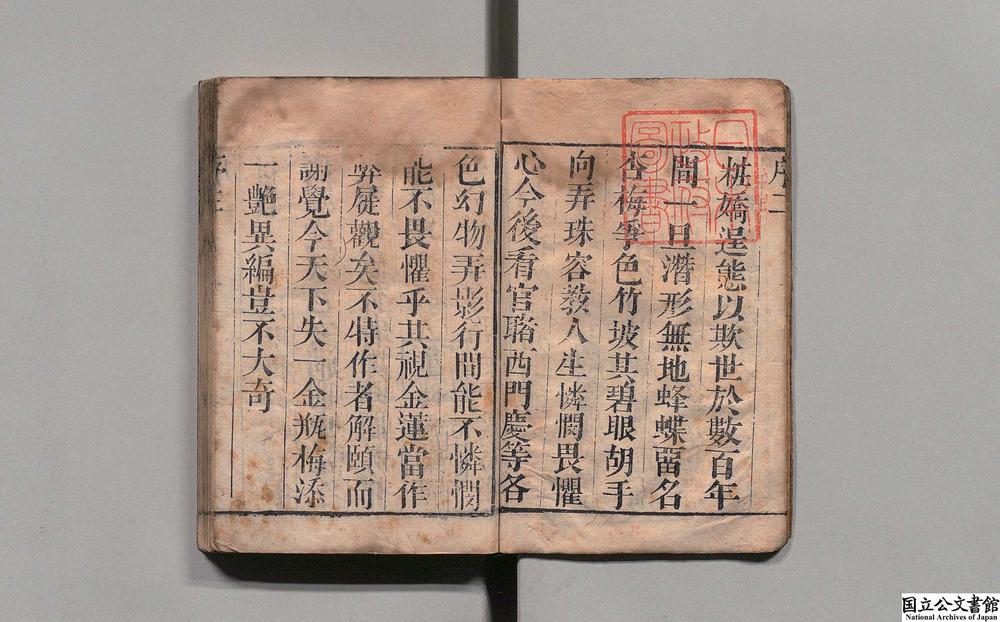 序二
粧嬌逞態以欺世於數百年
間一旦潛形無地蜂蝶畱名
杏梅爭色竹坡其碧眼胡乎
向弄珠客教人生憐憫畏懼
心今後看官睹西門慶等各
色幻物弄影行間能不憐憫
能不畏懼乎其視金蓮當作
弊屣觀矣不特作者解頤而
謝覺今天下失一金瓶梅添
一艷異編豈不大奇
序三
国立公文書館
National Archives of Japan